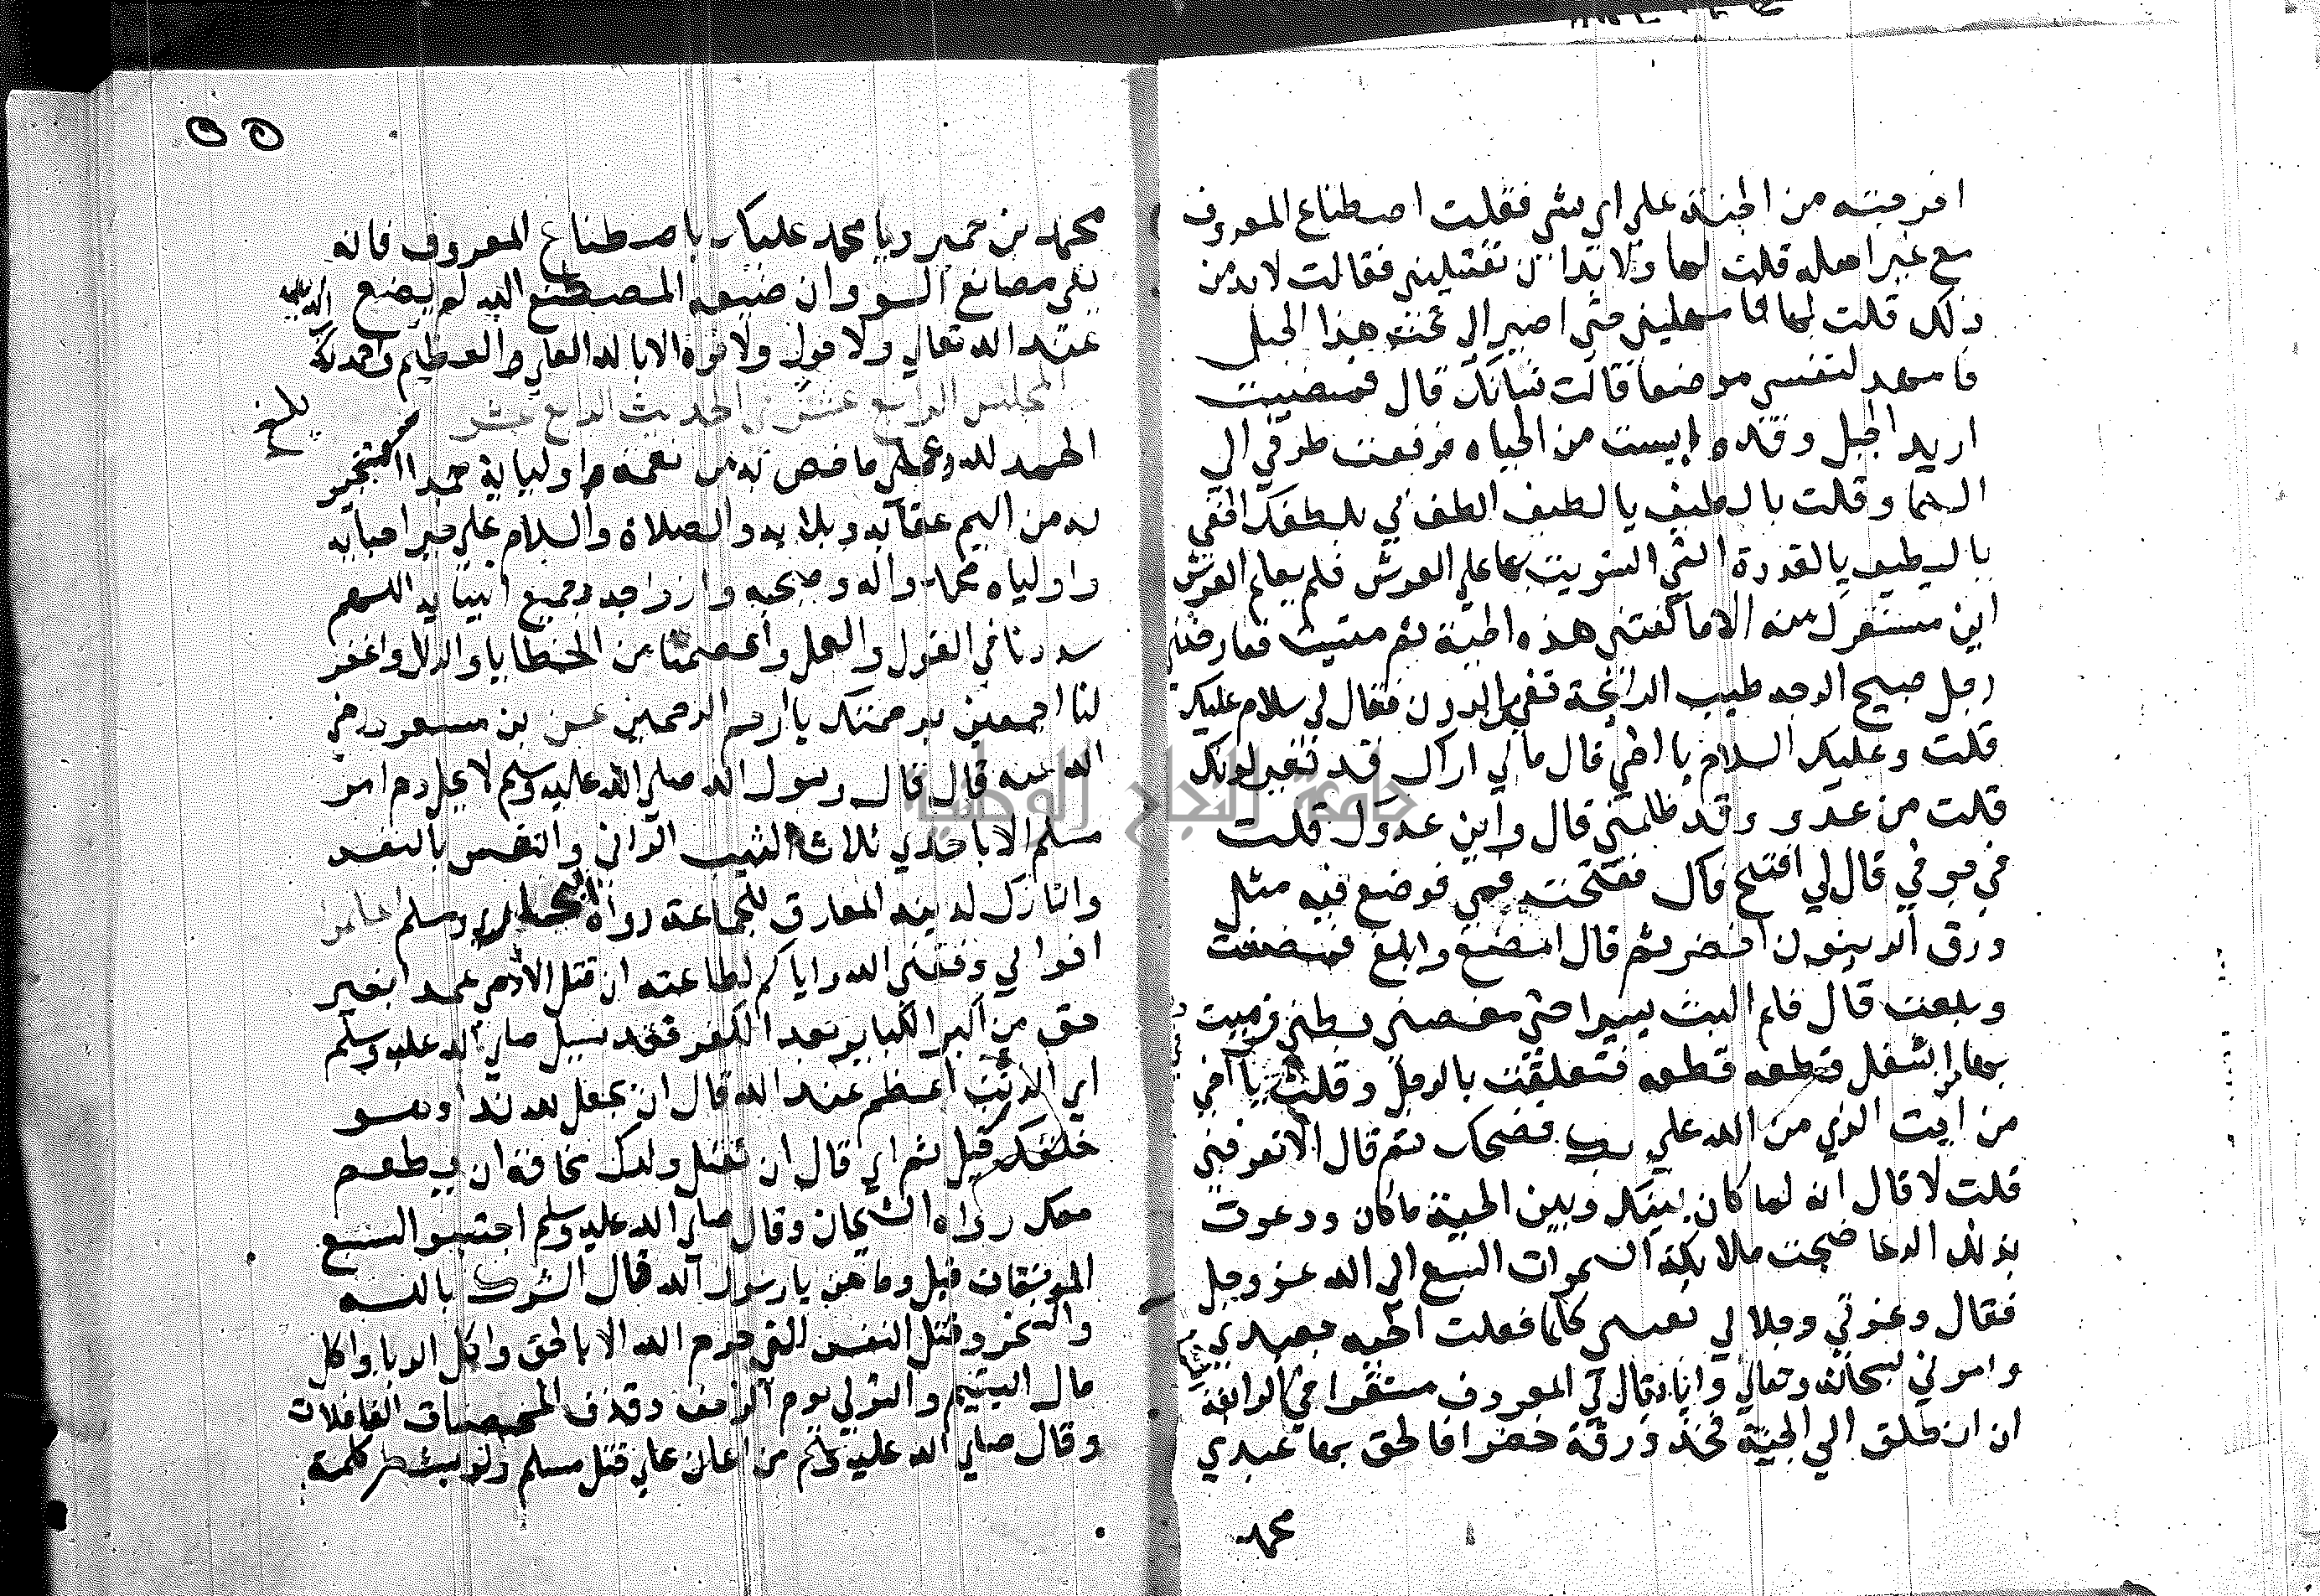 اخرجته من الجنة علي اي شي فقلت اصطناع المعروف
مع غير اهله قلت لها ولا بد ان تقتليني فقالت لا بد من
ذلك قلت لها فامهليني حتي اصير الي تحت هذا الجبل
فامهد لنفسي موضعا قالت شانك قال فمضيت
اريد الجبل وقد ايست من الحياه فرفعت طرفي الي
السما وقلت يا لطيف يا لطيف الطف بي بلطفك الخفي
يا لطيف بالقدرة التي استويت بها علي العرش فلم يعلم العرش
اين مستقرك منه الا ما كفيتني هذه الحية ثم مشيت فعارضني
رجل صبيح الوجه طيب الرائحة نقي الدرن فقال لي سلام عليك
قلت وعليك السلام يا اخي قال مالي اراك قد تغير لونك
قلت من عدو وقد ظلمني قال واين عدوك قلت
في جوفي قال لي افتح فاك ففتحت فمي فوضع فيه مثل
ورق الزيتون اخضر ثم قال امضغ وابلع فمضغت
وبلعت قال فلم البث يسيرا حتي مغصني بطني فرميت
بها من اسفل قطعه قطعه فتعلقت بالرجل وقلت يا اخي
من انت الذي من الله علي بك فضحك ثم قال الا تعرفني
قلت لا قال انه لما كان بينك وبين الحية ما كان ودعوت
بذلك الدعا ضجت ملايكة السموات السبع الي الله عز وجل
فقال وعزتي وجلالي بعيني كلما فعلت الحيه بعبدي
وامرني سبحانه وتعالي وانا يقال لي المعروف مستقرا في الرابعة
ان انطلق الي الجنة فخذ ورقة خضرا فالحق بها عبدي
محمد
٥٥
محمد بن حمير ويا محمد عليك باصطناع المعروف فانه
يقي مصارع السو وان ضيعه المصطنع اليه لم يضع
عند الله تعالي ولا حول ولا قوه الا بالله العلي العظيم
المجلس الرابع عشر في الحديث الرابع عشر
بلغ
الحمد لله علي ما خص به من نعمه اوليايه حمدا استجير
به من اليم عقابه وبلايه والصلاة والسلام علي خير احبابه
واولياه محمد واله وصحبه وازواجه وجميع انبيايه اللهم
سددنا في القول والعمل واعصمنا من الخطايا والزلل واغفر
لنا اجمعين برحمتك يا ارحم الرحمين عن بن مسعود رضي
الله عنه قال قال رسول الله صلي الله عليه وسلم لا يحل دم امر
مسلم الا باحدي ثلاث الثيب الزاني والنفس بالنفس
والتارك لدينه المفارق للجماعة رواه البخاري ومسلم اعلموا
اخواني وفقني الله واياكم لطاعته ان قتل الادمي عمدا بغير
حق من اكبر الكباير بعد الكفر فقد سيل صلي الله عليه وسلم
اي الذنب اعظم عند الله قال ان تجعل لله ندا وهو
خلقك قيل ثم اي قال ان تقتل ولدك مخافة ان يطعم
معك رواه الشيخان وقال صلي الله عليه وسلم اجتنبوا السبع
الموبقات قيل وما هن يا رسول الله قال الشرك بالله
والسحر وقتل النفس التي حرم الله الا بالحق واكل الربا واكل
مال اليتيم والتولي يوم الزحف وقذف المحصنات الغافلات
وقال صلي الله عليه وسلم من اعان علي قتل مسلم ولو بشطر كلمة
جامعة النجاح الوطنية